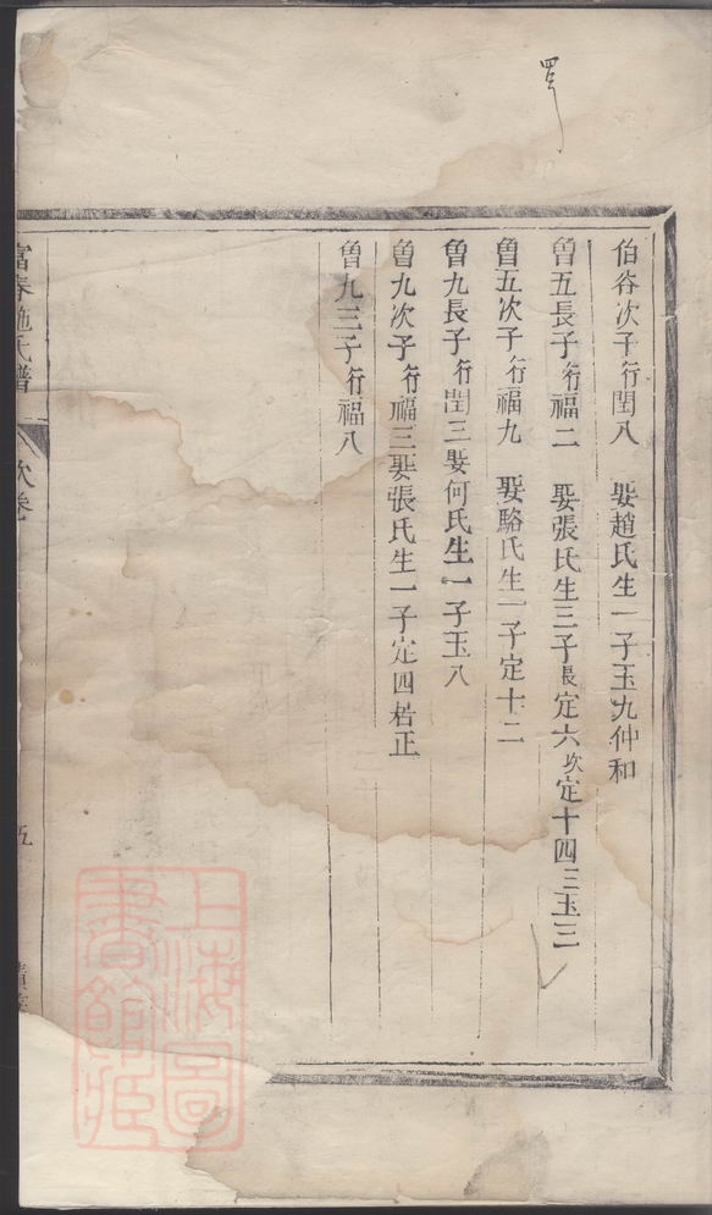 伯谷次子行閏八 娶趙氏生一子玉九仲和
曾五長子行福二 娶張氏生三子長定六次定十四三玉三
曾五次子行福九 娶駱氏生一子定十二
曾九長子行閏三娶何氏生一子玉八
曾九次子行福三娶張氏生一子定四君正
曾九三子行福八
富春施氏譜 次卷 五
上海圖書館藏